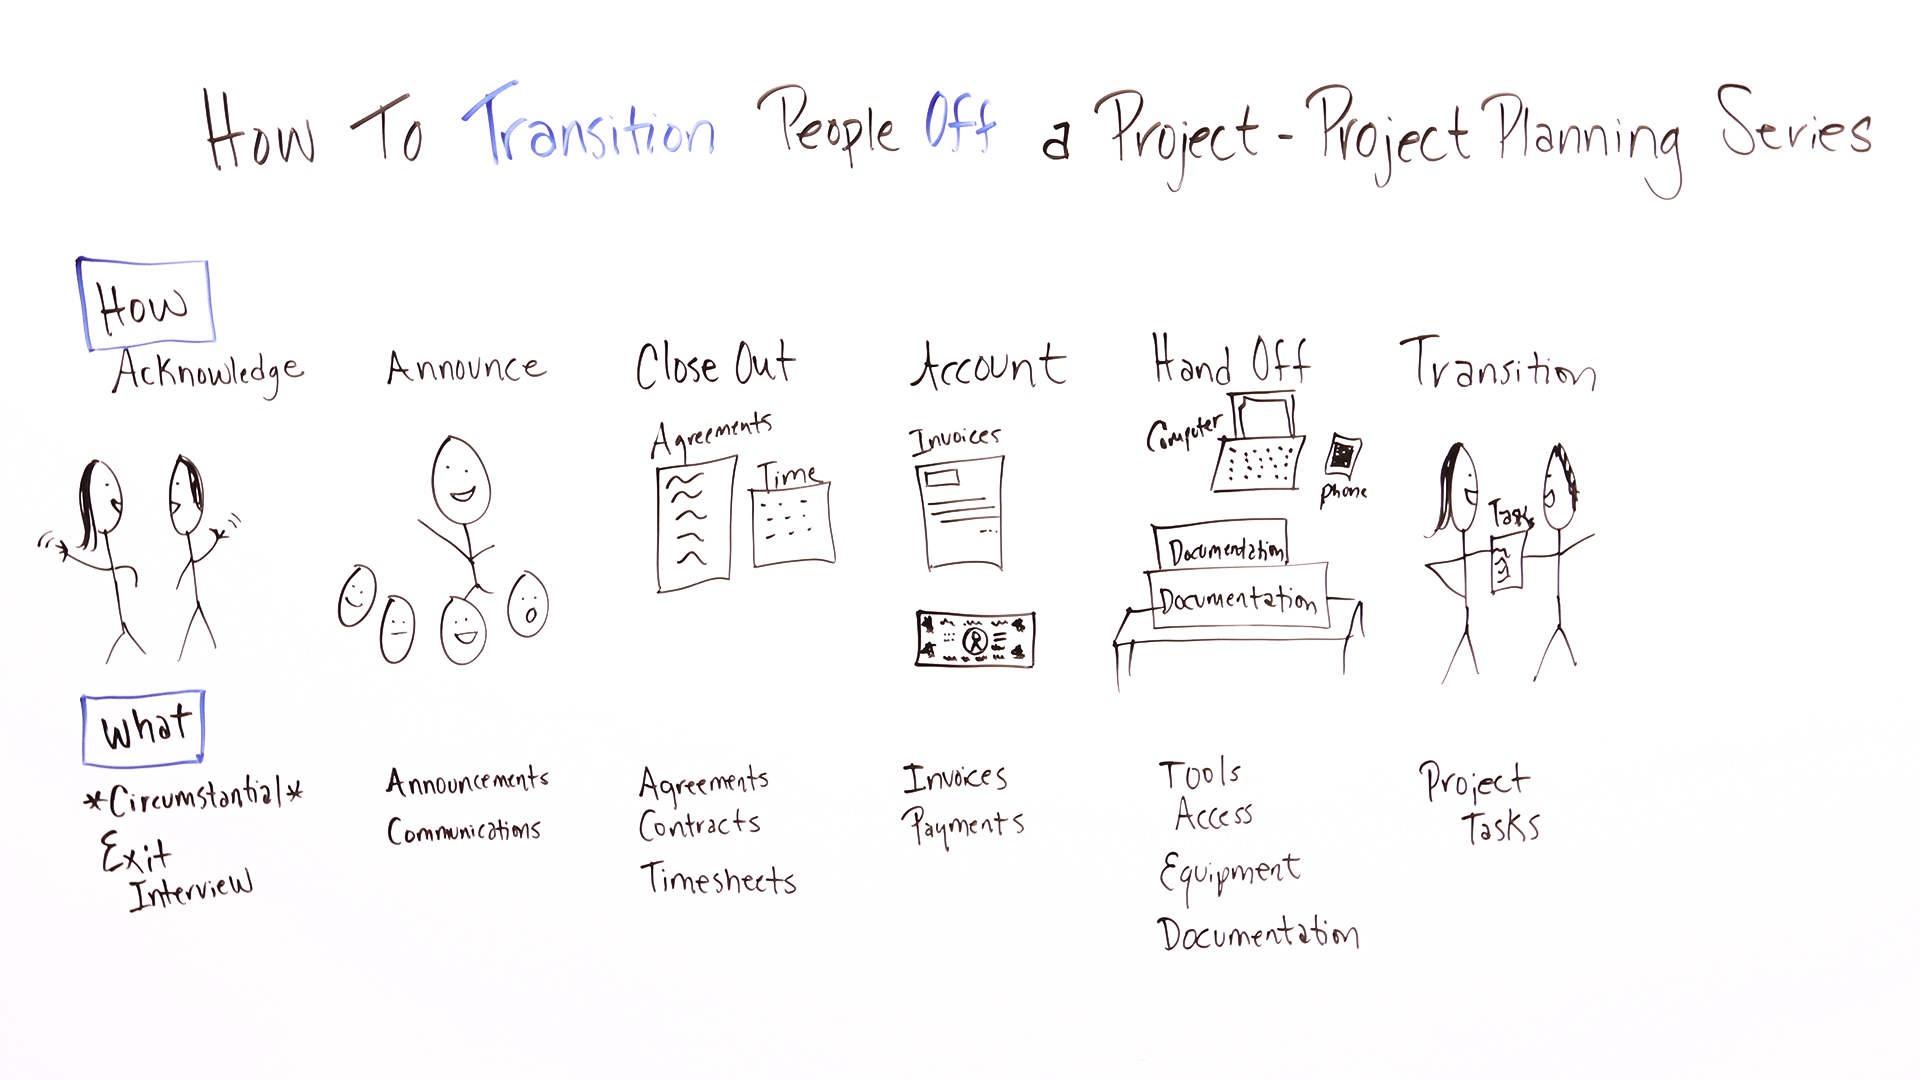 How To Transition People Off a Project - Project Planning Series
How
Acknowledge
Announce
Close Out
Account
Hand Off
Transition
Agreements
Time
Invoices
Computer
phone
Documentation
Documentation
Task
What
*Circumstantial*
Exit
Interview
Announcements
Communications
Agreements
Contracts
Timesheets
Invoices
Payments
Tools
Access
Equipment
Documentation
Project
Tasks